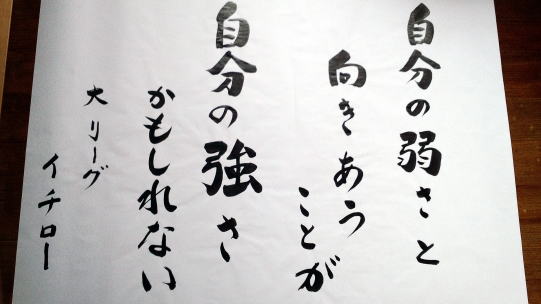 自分の弱さと
向きあう
ことが
自分の強さ
かもしれない
大リーグ
イチロー